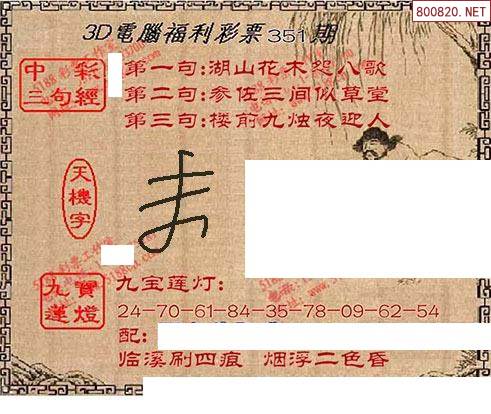 800820.NET
3D電腦福利彩票351期
中彩
三句經
第一句:湖山花木怨八歌
第二句:参佐三间似草堂
第三句:楼前九烛夜迎人
天機字
九寶
蓮燈
九宝莲灯:
24-70-61-84-35-78-09-62-54
配:
临溪刷四痕 烟浮二色昏